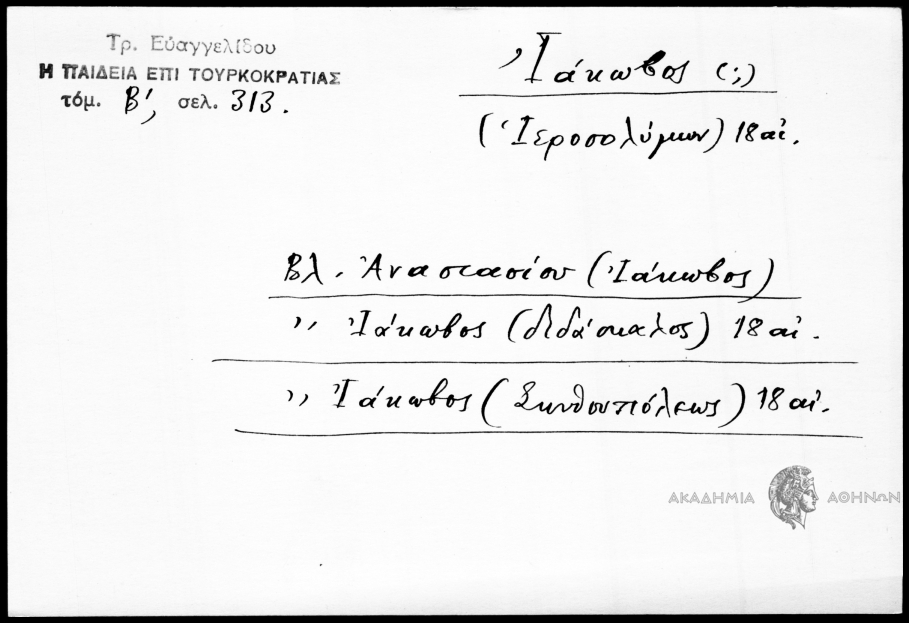 Τρ. Εὐαγγελίδου
Η ΠΑΙΔΕΙΑ ΕΠΙ ΤΟΥΡΚΟΚΡΑΤΙΑΣ
τόμ. Β', σελ. 313.
Ἰάκωβος (;)
(Ἱεροσολύμων) 18 αἰ.
Βλ. Ἀναστασίου (Ἰάκωβος)
,, Ἰάκωβος (διδάσκαλος) 18 αἰ.
,, Ἰάκωβος (Σκυθουπόλεως) 18 αἰ.
ΑΚΑΔΗΜΙΑ ΑΘΗΝΩΝ